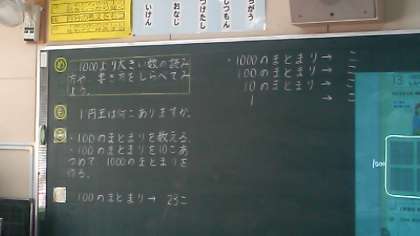 いけん
おなじ
つけたし
しつもん
ちがう
め 1000より大きい数の読み
方や 書き方をしらべてみ
よう。
も 1円玉は何こありますか。
・1000のまとまりを数える
・100のまとまりを10こあ
つめて 1000のまとまりを
作る。
100のまとまり→ 23こ
・1000のまとまり→
100のまとまり→
10のまとまり→
1 →
13